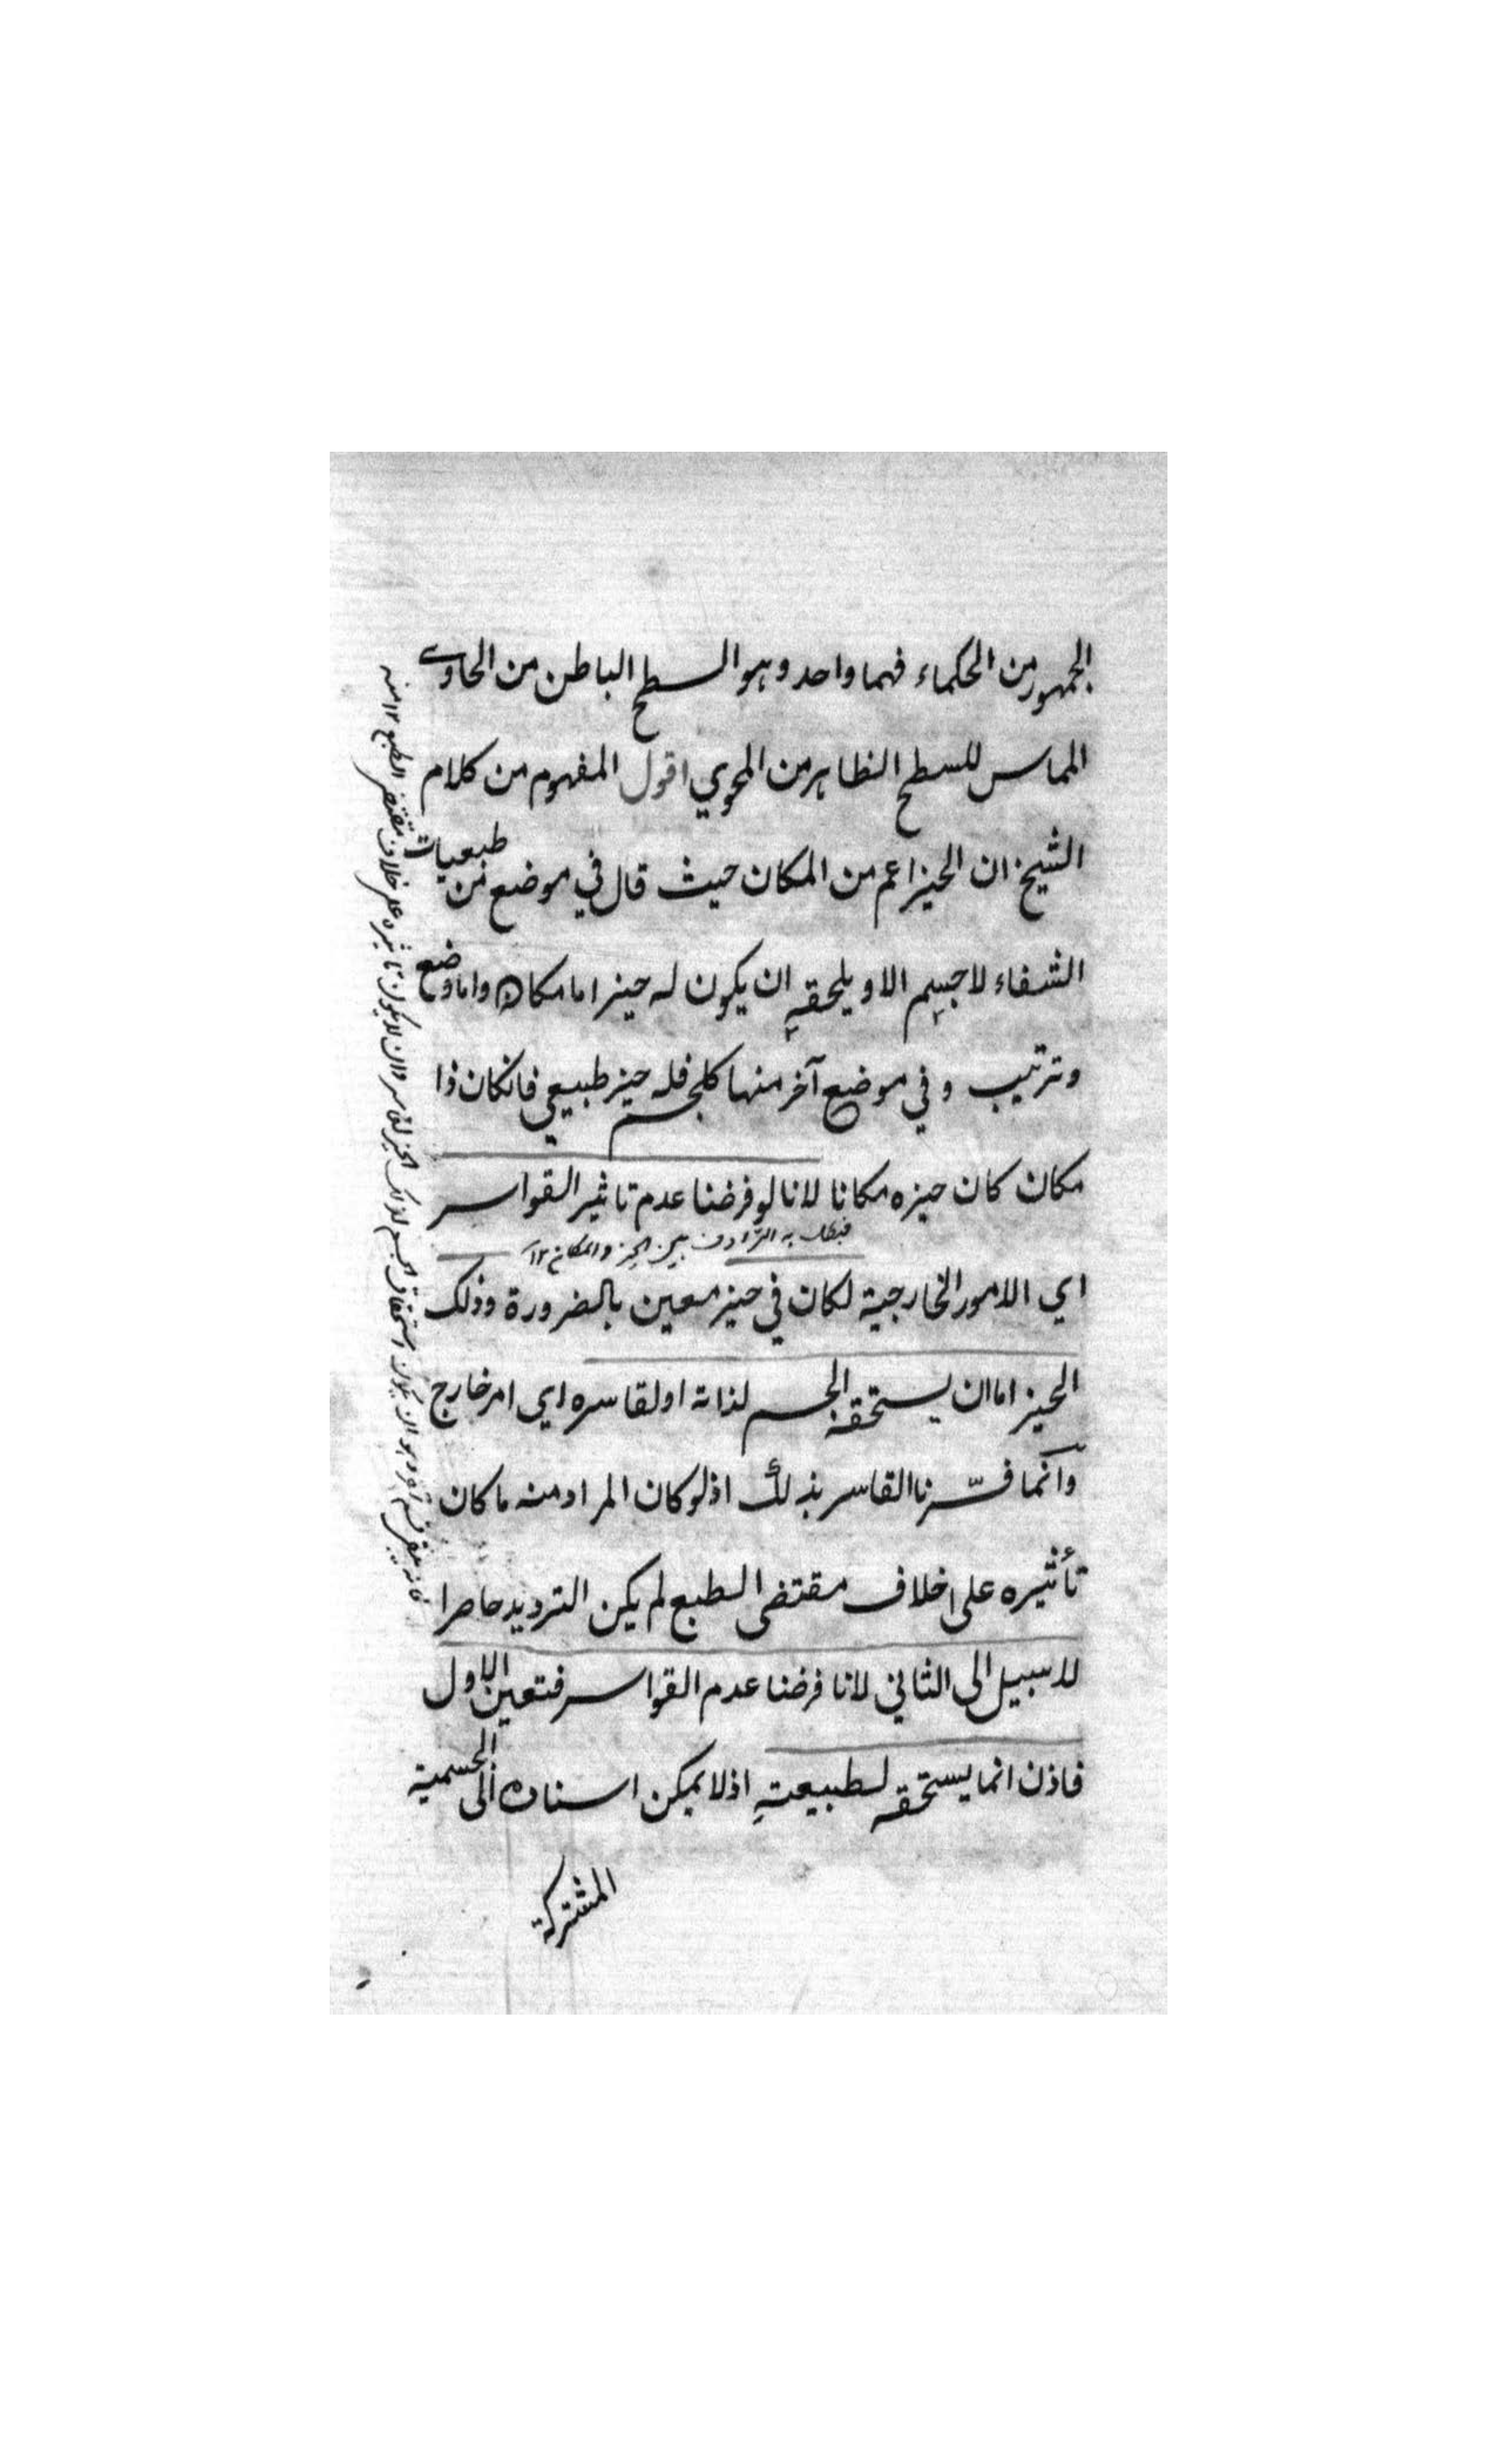 الجمهور من الحكماء فهما واحد وهو السطح الباطن من الحاوي
المماس للسطح الظاهر من المحوي اقول المفهوم من كلام
الشيخ ان الحيز اعم من المكان حيث قال في موضع من طبعيات
الشفاء لا جسم الا و يلحقه ان يكون له حيز اما مكان واما وضع
وترتيب و في موضع آخر منها كل جسم فله حيز طبيعي فانكان ذا
مكان كان حيزه مكانا لانا لو فرضنا عدم تاثير القواسر
فبطل به الترادف بين الحيز والمكان ١٢
اي الامور الخارجية لكان في حيز معين بالضرورة وذلك
الحيز اما ان يستحقه الجسم لذاته او لقاسره اي امر خارج
وانما فسّرنا القاسر بذلك اذ لو كان المراد منه ما كان
تأثيره على خلاف مقتضى الطبع لم يكن الترديد حاصرا
لا سبيل الى الثاني لانا فرضنا عدم القواسر فتعين الاول
فاذن انما يستحقه لطبيعته اذ لا يمكن اسناده الى الجسمية
المشتركة
فانه يبقى قسم آخر وهو ان يكون استحقاق الجسم لذلك الحيز لقاسر وان لا يكون تاثيره على خلاف مقتضى الطبع ١٢ منه